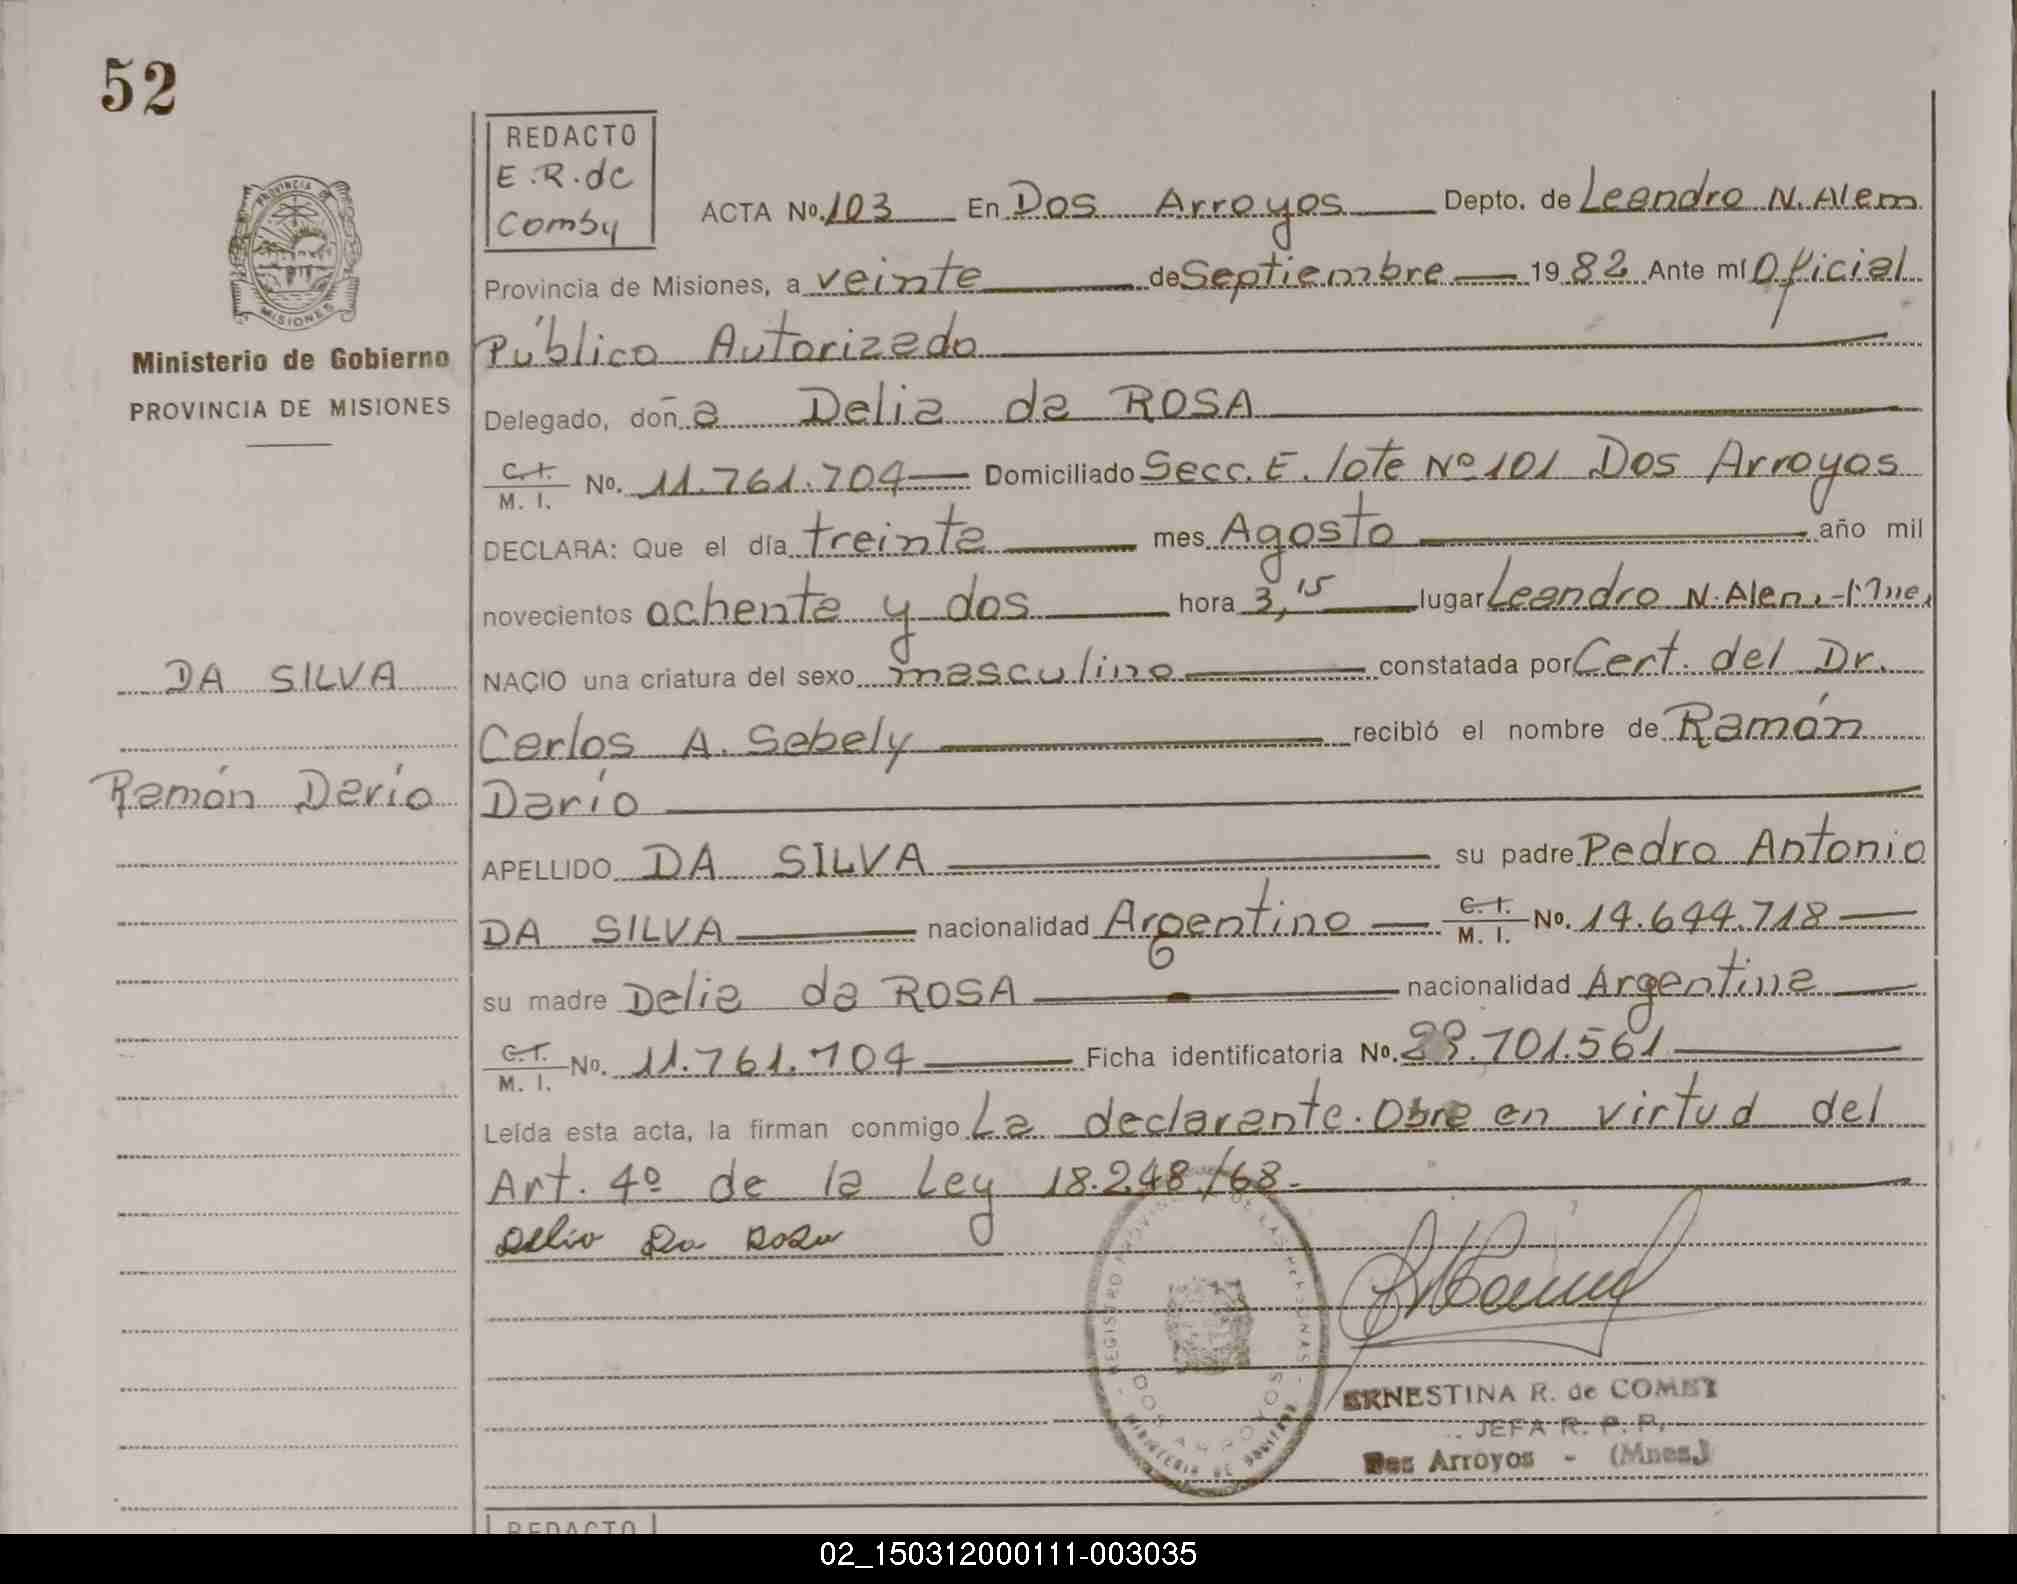 52
REDACTO
E.R.de
Comby
ACTA No. 103 En Dos Arroyos Depto. de Leandro N. Alem
Provincia de Misiones, a veinte de Septiembre 1982 Ante mí Oficial
Público Autorizado
Delegado, doña Delia da ROSA
C.I. M. I. No. 11.761.704 Domiciliado Secc. E. lote Nº 101 Dos Arroyos
DECLARA: Que el día treinta mes Agosto año mil
novecientos ochenta y dos hora 3,15 lugar Leandro N. Alem - Mnes
NACIO una criatura del sexo masculino constatada por Cert. del Dr.
Carlos A. Sebely recibió el nombre de Ramón
Darío
APELLIDO DA SILVA su padre Pedro Antonio
DA SILVA nacionalidad Argentino C.I. M. I. No. 14.644.718
su madre Delia da ROSA nacionalidad Argentina
C.I. M. I. No. 11.761.704 Ficha identificatoria No. 29.701.561
Leída esta acta, la firman conmigo La declarante. Obre en virtud del
Art. 4º de la Ley 18.248/68.-
Delia Da Rosa
PROVINCIA DE
MISIONES
Ministerio de Gobierno
PROVINCIA DE MISIONES
DA SILVA
Ramón Darío
REGISTRO PROVINCIAL DE LAS PERSONAS
DOS ARROYOS
MINISTERIO DE GOBIERNO
ERNESTINA R. de COMBY
JEFA R. P. P.
Dos Arroyos - (Mnes.)
REDACTO
02_150312000111-003035